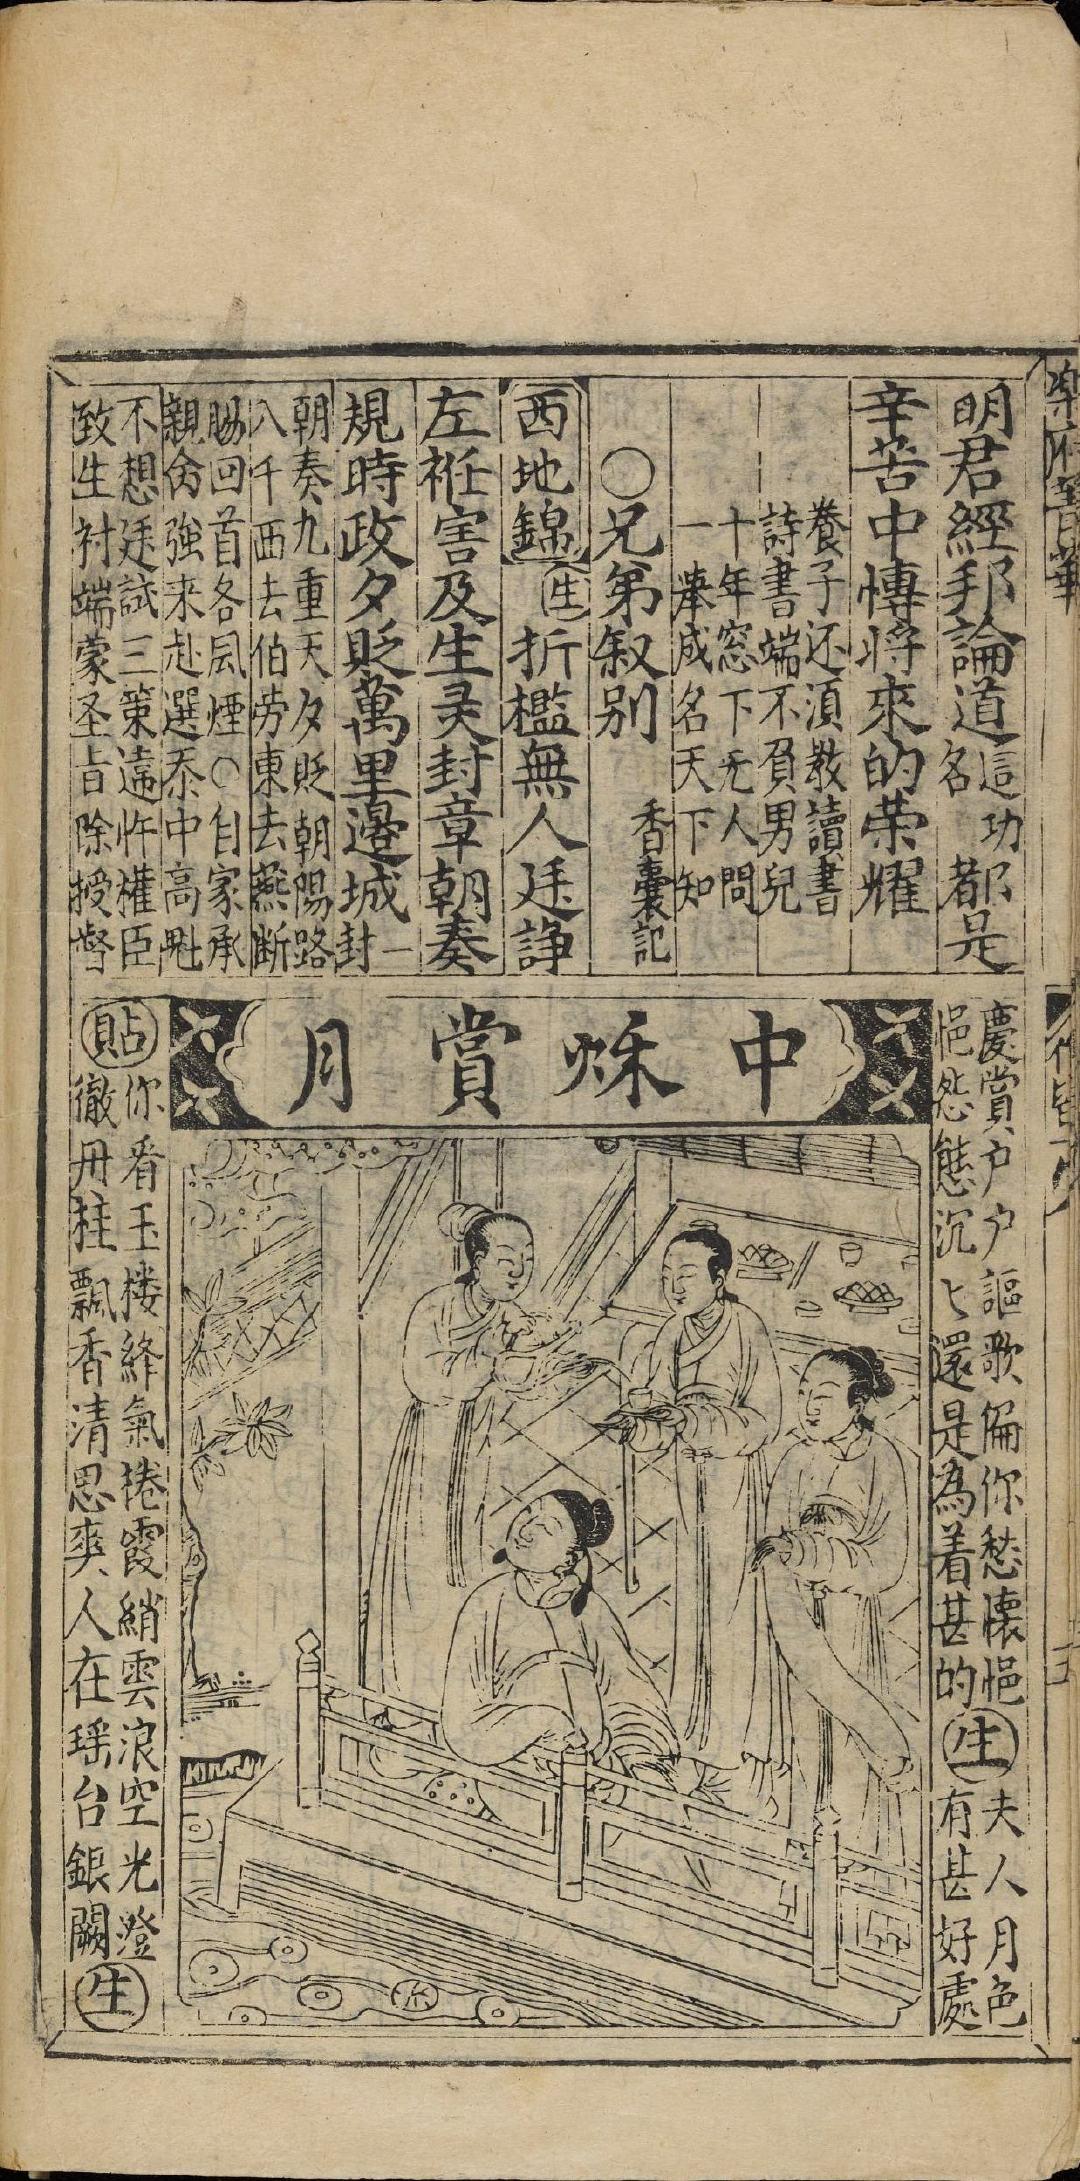 明君經邦論道這功名都是
辛苦中博將來的荣耀
養子还須教讀書
詩書端不負男兒
十年窓下无人問
一舉成名天下知
○兄弟叙别
香囊記
西地錦
生
折檻無人廷諍
左袵害及生灵封章朝奏
規時政夕貶萬里邉城一封
朝奏九重天夕貶朝陽路
八千西去伯劳東去燕断
賜回首各風煙○自家承
親命強来赴選忝中高魁
不想廷試三策違忤權臣
致生衬端蒙圣旨除授督
慶賞户户謳歌偏你愁懐悒
悒怨態沉七還是為着甚的
生
夫人月色
有甚好處
中秌賞月
貼
你看玉楼絳氣捲霞綃雲浪空光澄
徹丹桂飄香清思爽人在瑶台銀闕
生